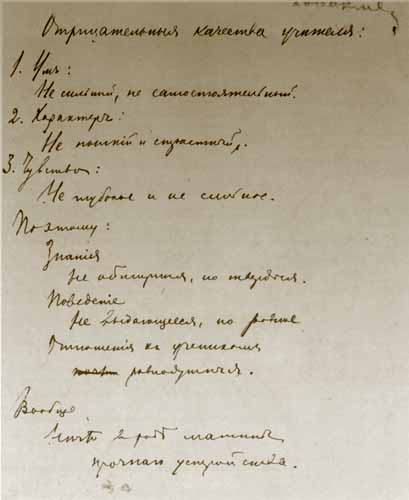 Отрицательныя качества учителя:
1. Умъ:
Не сильный, не самостоятельный.
2. Характеръ:
Не пошлый и страстный,
3. Чувство:
Не глубокое и не слабое.
Поэтому:
Знанія
Не обширныя, но твердыя.
Поведеніе
Не выдающееся, но ровное
Отношенія къ ученикамъ
равнодушныя.
Вообще
въ родѣ машины
прочнаго устройства.